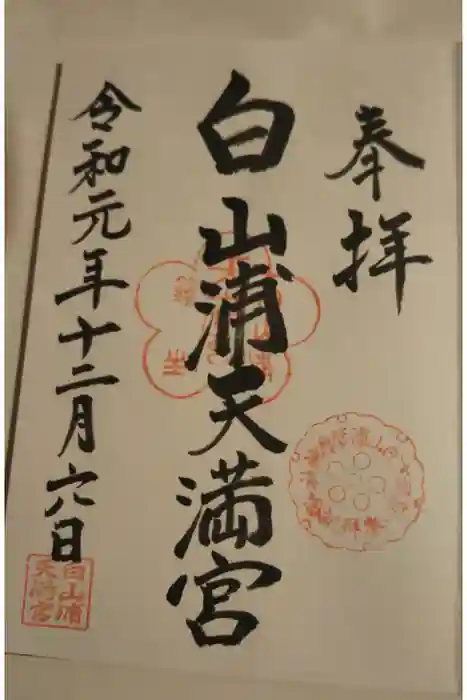 奉拝
白山浦天満宮
令和元年十二月六日
白山浦
天満宮